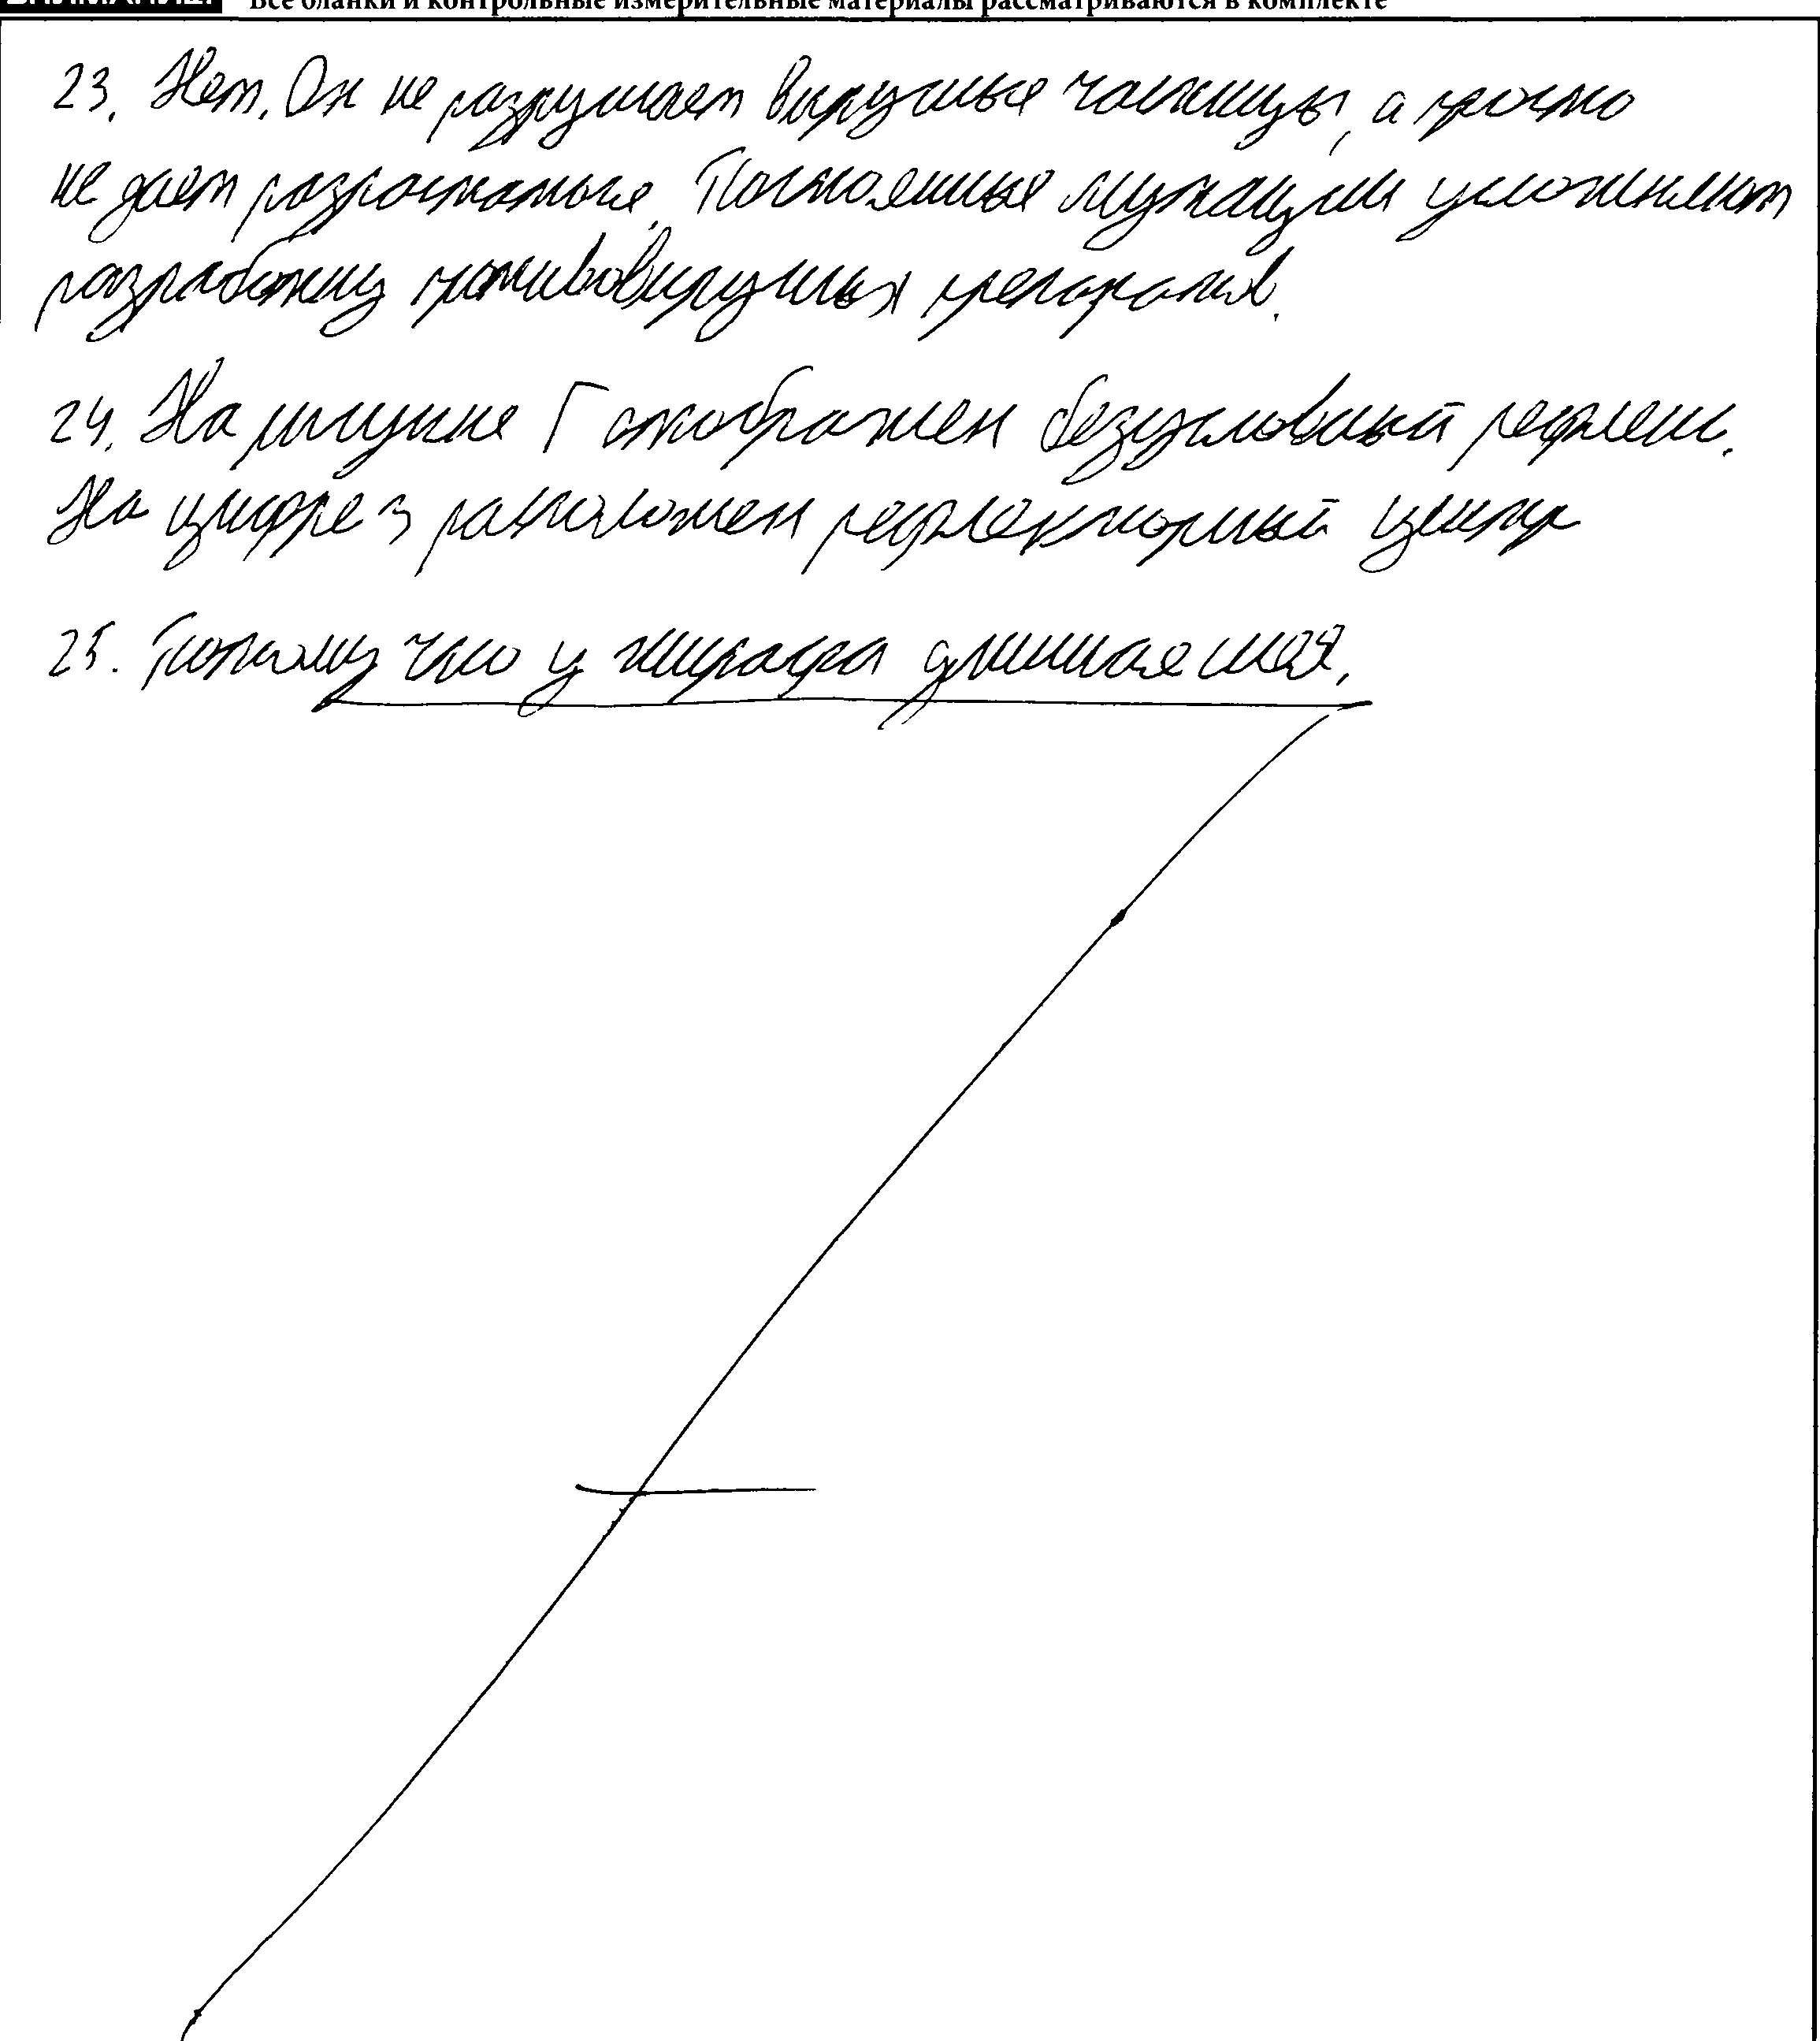 Все бланки и контрольные измерительные материалы рассматриваются в комплекте
23. Нет. Он не разрушает вирусные частицы, а просто
не дает разростаться. Постоянные мутации усложняют
разработку противовирусных препаратов.
24. На рисунке Г отображен безусловный рефлекс.
На цифре 3 расположен рефлекторный центр
25. Потому что у жирафа длинная шея.